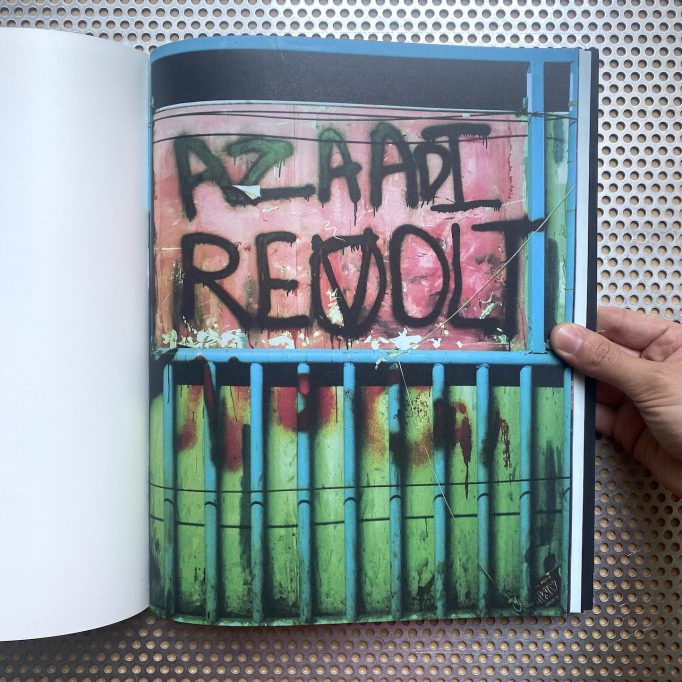 AZAADI
REVOLT